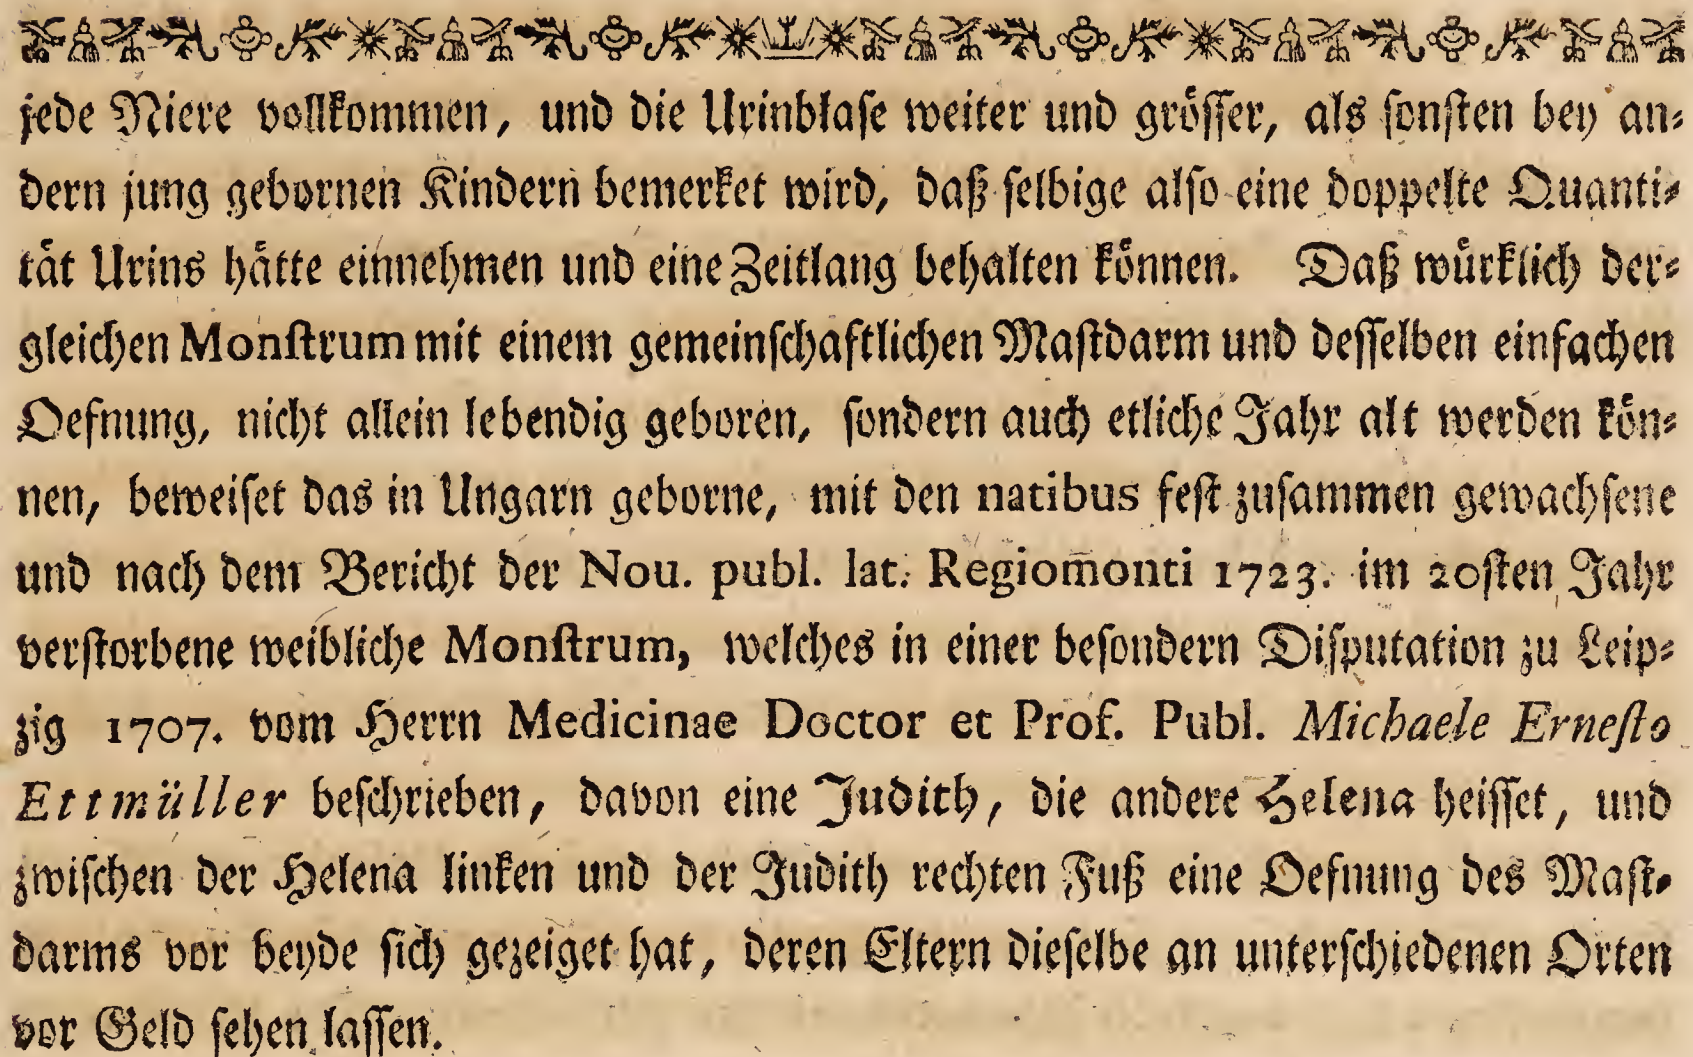 jede Niere vollkommen, und die Urinblaſe weiter und gröſſer, als ſonſten bey an⸗
dern jung gebornen Kindern bemerket wird, daß ſelbige alſo eine doppelte Quanti⸗
tåt Urins håtte einnehmen und eine Zeitlang behalten können. Daß würklich der⸗
gleichen Monſtrum mit einem gemeinſchaftlichen Maſtdarm und deſſelben einfachen
Oefnung, nicht allein lebendig geboren, ſondern auch etliche Jahr alt werden kön⸗
nen, beweiſet das in Ungarn geborne, mit den natibus feſt zuſammen gewachſene
und nach dem Bericht der Nou. publ. lat. Regiom̄onti 1723. im 20ſten Jahr
verſtorbene weibliche Monſtrum, welches in einer beſondern Diſputation zu Leip⸗
zig 1707. vom Herrn Medicinae Doctor et Prof. Publ. Michaele Erneſto
Ettmüller beſchrieben, davon eine Judith, die andere Helena heiſſet, und
zwiſchen der Helena linken und der Judith rechten Fuß eine Oefnung des Maſt⸗
darms vor beyde ſich gezeiget hat, deren Eltern dieſelbe an unterſchiedenen Orten
vor Geld ſehen laſſen.